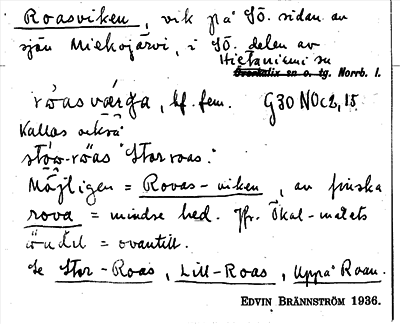 Roasviken, vik på SÖ. sidan av
sjön Miekojärvi, i SÖ. delen av
Hietaniemi sn
Överkalix sn o. tg. Norrb. l.
rɷ́asvárga, bf. fem. G30 NOc2,15
Kallas också
stɷ́r-rɷ̀as "Stor roas."
Möjligen = Rovas-viken, av finska
rova = mindre hed. Jfr. Ökal-målets
= ovantill.
Se Stor-Roas, Lill-Roas, Uppå Roan.
EDVIN BRÄNNSTRÖM 1936.